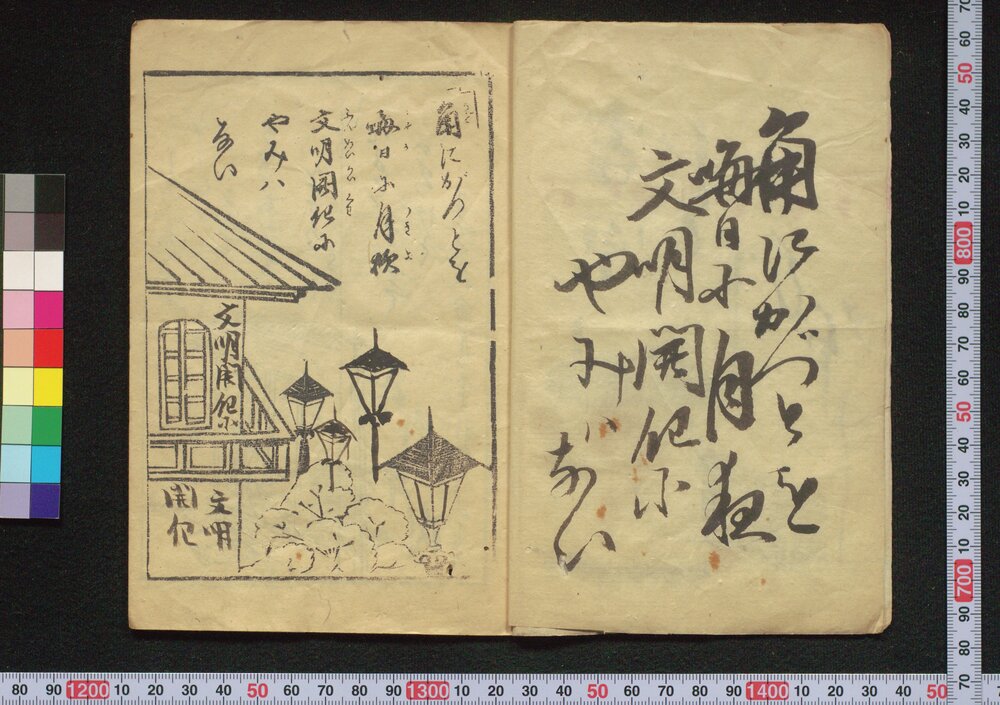 角にがつとを
晦日に月夜
文明開化に
やみハ
ない
角にがつとを
晦日に月夜
文明開化に
やみハ
ない
文明開化に
文明
開化